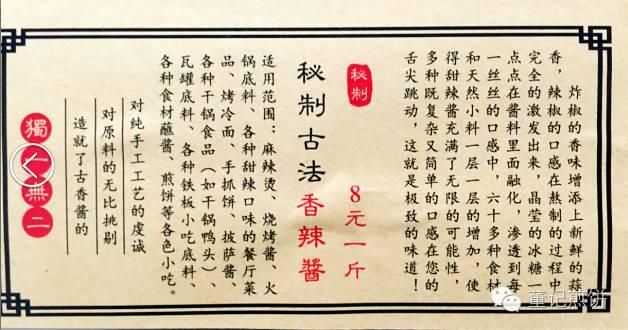 炸椒的香味增添上新鲜的蒜
香，辣椒的口感在熬制的过程中
完全的激发出来，晶莹的冰糖一
点点在酱料里面融化，渗透到每
一丝丝的口感中，六十多种食材
和天然小料一层一层的增加，使
得甜辣酱充满了无限的可能性，
多种既复杂又简单的口感在您的
舌尖跳动，这就是极致的味道！
8元一斤
秘制
秘制古法香辣醬
适用范围：麻辣烫、烧烤酱、火
锅底料、各种甜辣口味的餐厅菜
品、烤冷面、手抓饼、披萨酱、
各种干锅食品（如干锅鸭头）、
瓦罐底料、各种铁板小吃底料、
各种食材蘸酱、煎饼等各色小吃。
对纯手工工艺的虔诚
对原料的无比挑剔
造就了古香酱的
獨一無二
董记煎饼